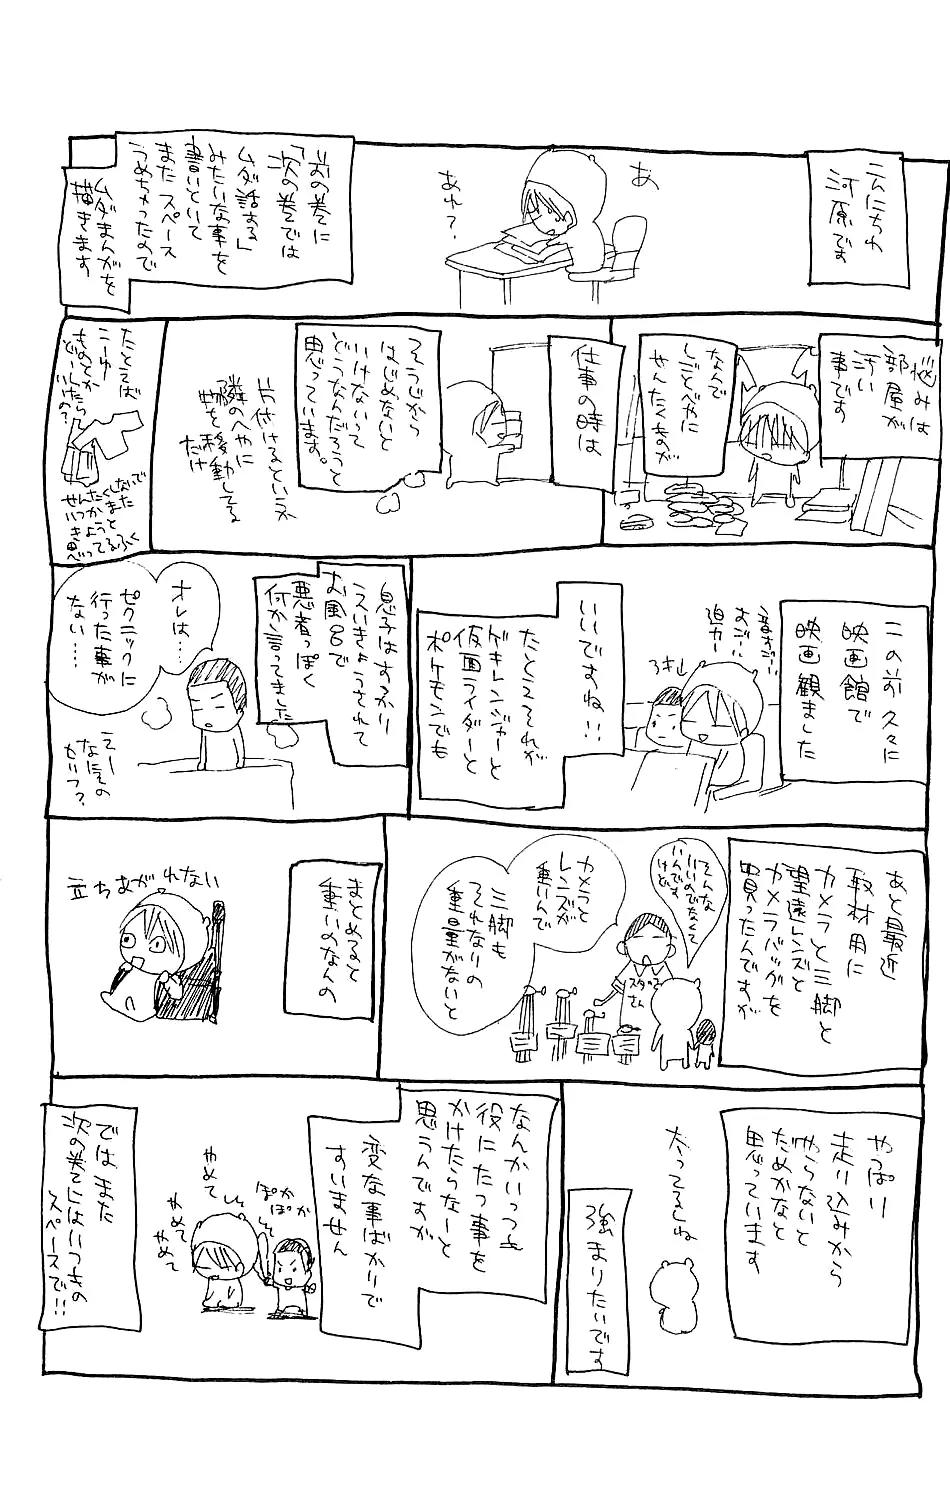 こんにちわ
河原です
あ
あれ?
前の巻に
「次の巻では
ムダ話する」
みたいな事を
書いといて
またスペース
うめちゃったので
ムダまんがを
描きます
悩みは
部屋が
汚い
事です
なんで
しごとべやに
せんたくものが
仕事の時は
そうじから
はじめないと
いけないって
どうなんだろうと
思っています。
片付けるといえ
隣のへやに
物を移動してる
だけ
たとえば
こーゆー
ものとか
どーしたら
いいの?
せんたくしないで
いつかまた
きようと
思ってるふく
この前久々に
映画館で
映画観ました
音すごー
すごー
迫力ー
いいですね!!
たとえそれが
ゲキレンジャーと
仮面ライダーと
ポケモンでも
息子はすっかり
えいきょうされて
お風呂で
悪者っぽく
何か言ってました
オレは…
ピクニックに
行った事が
ない…
えー
なにその
セリフ?
あと最近
取材用に
カメラと三脚と
望遠レンズと
カメラバッグを
買ったんですが
そんな
いいのでなくて
いいんです
けど
スタッフ
さん
カメラと
レンズが
重いんで
三脚も
それなりの
重量がないと
まとめると
重いのなんの
立ちあがれない
やっぱり
走り込みから
やらないと
だめかなと
思っています
太ってるしね
強まりたいです
なんかいっつも
役にたつ事を
かけたらなーと
思うんですが
変な事ばかりで
すいません
ぽか
ぽか
やめて
やめて
やめて
ではまた
次の巻にはいつもの
スペースで!!